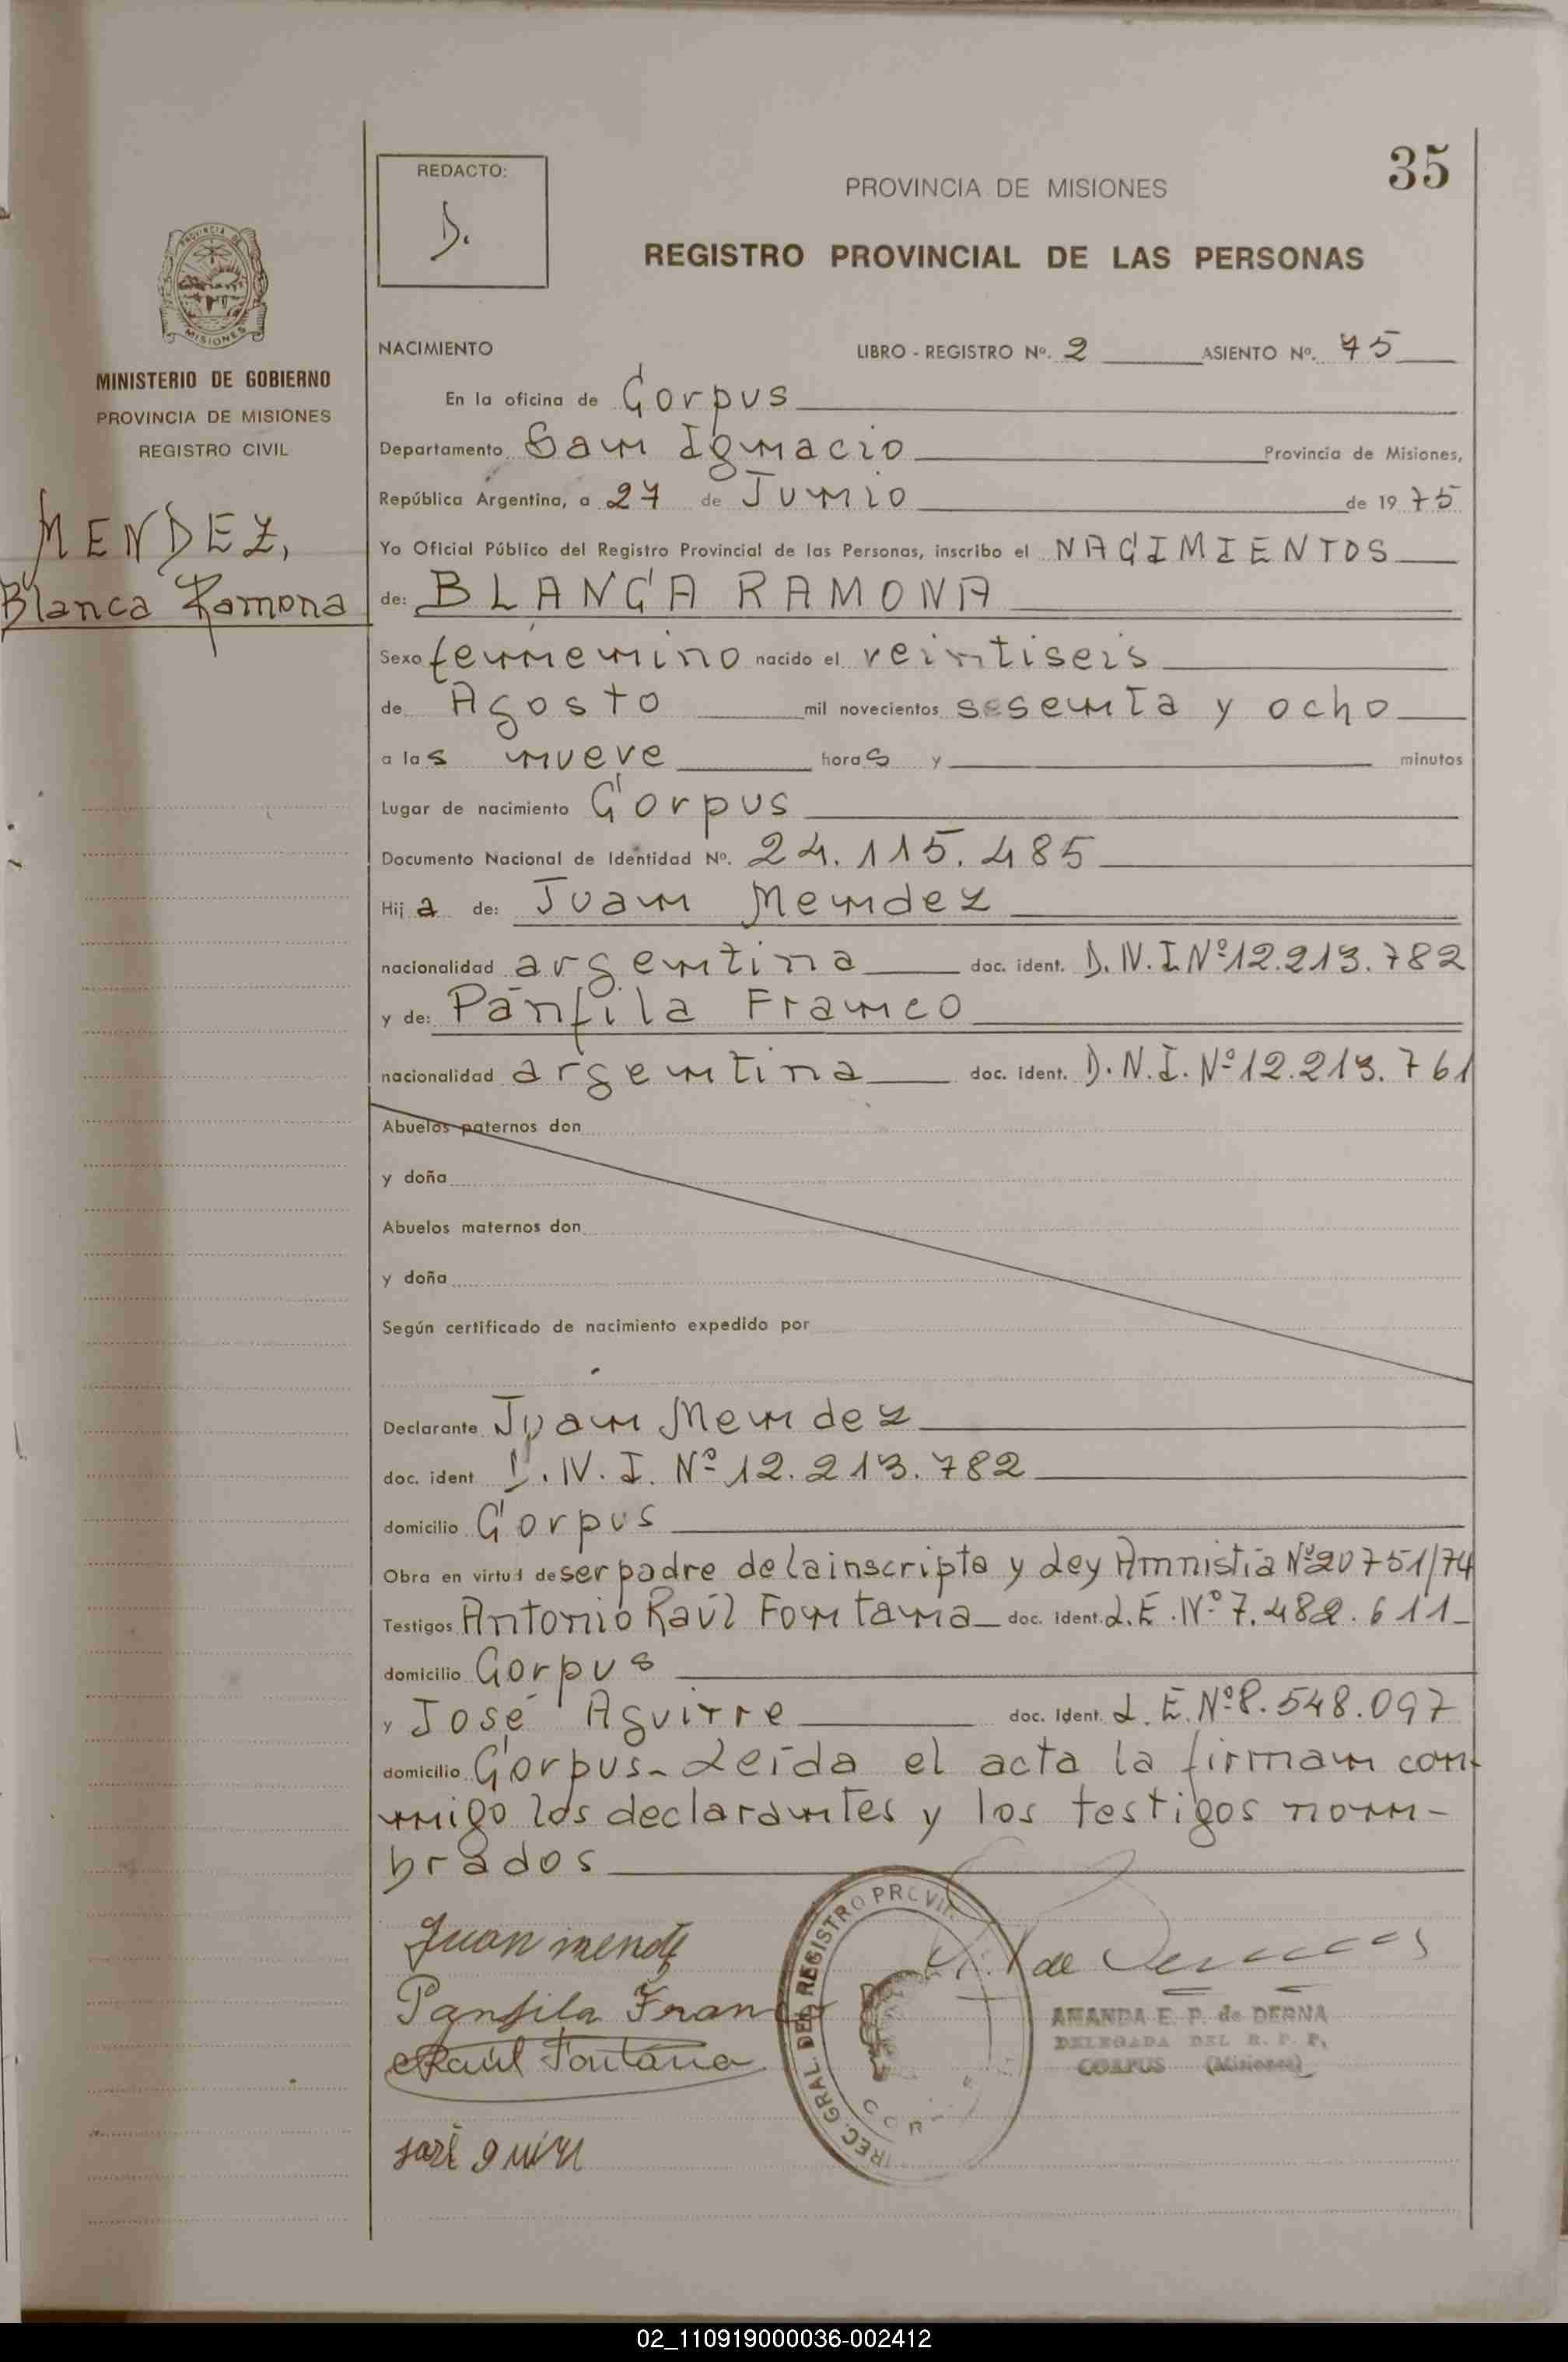 35
REDACTO:
D.
PROVINCIA DE MISIONES
REGISTRO PROVINCIAL DE LAS PERSONAS
PROVINCIA DE
MISIONES
MINISTERIO DE GOBIERNO
PROVINCIA DE MISIONES
REGISTRO CIVIL
MENDEZ,
Blanca Ramona
NACIMIENTO LIBRO - REGISTRO Nº. 2 ASIENTO Nº. 75
En la oficina de Corpus
Departamento San Ignacio Provincia de Misiones,
República Argentina, a 27 de Junio de 1975
Yo Oficial Público del Registro Provincial de las Personas, inscribo el NACIMIENTOS
de: BLANCA RAMONA
Sexo femenino nacido el veintiseis
de Agosto mil novecientos sesenta y ocho
a las nueve horas y minutos
Lugar de nacimiento Corpus
Documento Nacional de Identidad Nº. 24.115.485
Hija de: Juan Mendez
nacionalidad argentina doc. ident. D.N.I. Nº 12.213.782
y de: Pánfila Franco
nacionalidad argentina doc. ident. D.N.I. Nº 12.213.761
Abuelos paternos don
y doña
Abuelos maternos don
y doña
Según certificado de nacimiento expedido por
Declarante Juan Mendez
doc. ident D.N.I. Nº 12.213.782
domicilio Corpus
Obra en virtud de ser padre de la inscripta y Ley Amnistía Nº 20751/74
Testigos Antonio Raúl Fontana doc. ident. L.E. Nº 7.482.611
domicilio Corpus
y José Aguirre doc. ident. L.E. Nº 8.548.097
domicilio Corpus- Leída el acta la firman con-
migo los declarantes y los testigos nom-
brados
Juan mendez
Panfila Franco
Raúl Fontana
DIREC. GRAL. DEL REGISTRO PROVIN
AMANDA E. P. de DERNA
DELEGADA DEL R. P. P.
CORPUS (Misiones)
02_110919000036-002412